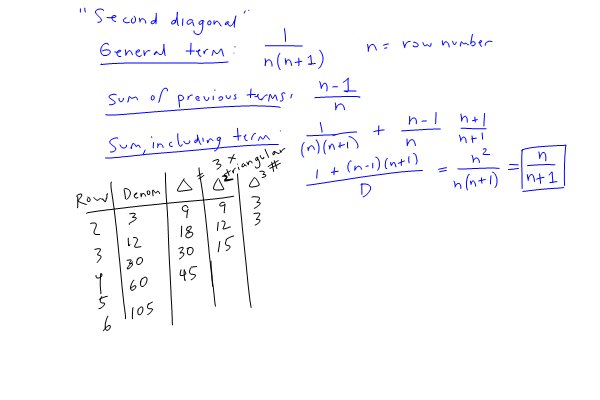 "Second diagonal"
General term: 1/n(n+1) n = row number
Sum of previous terms: n-1/n
Sum, including term: 1/(n)(n+1) + n-1/n n+1/n+1
1 + (n-1)(n+1)/D = n²/n(n+1) = n/n+1
= 3 x triangular #
Row Denom Δ Δ² Δ³
2 3 9 9 3
3 12 18 12 3
4 30 30 15
5 60 45
6 105